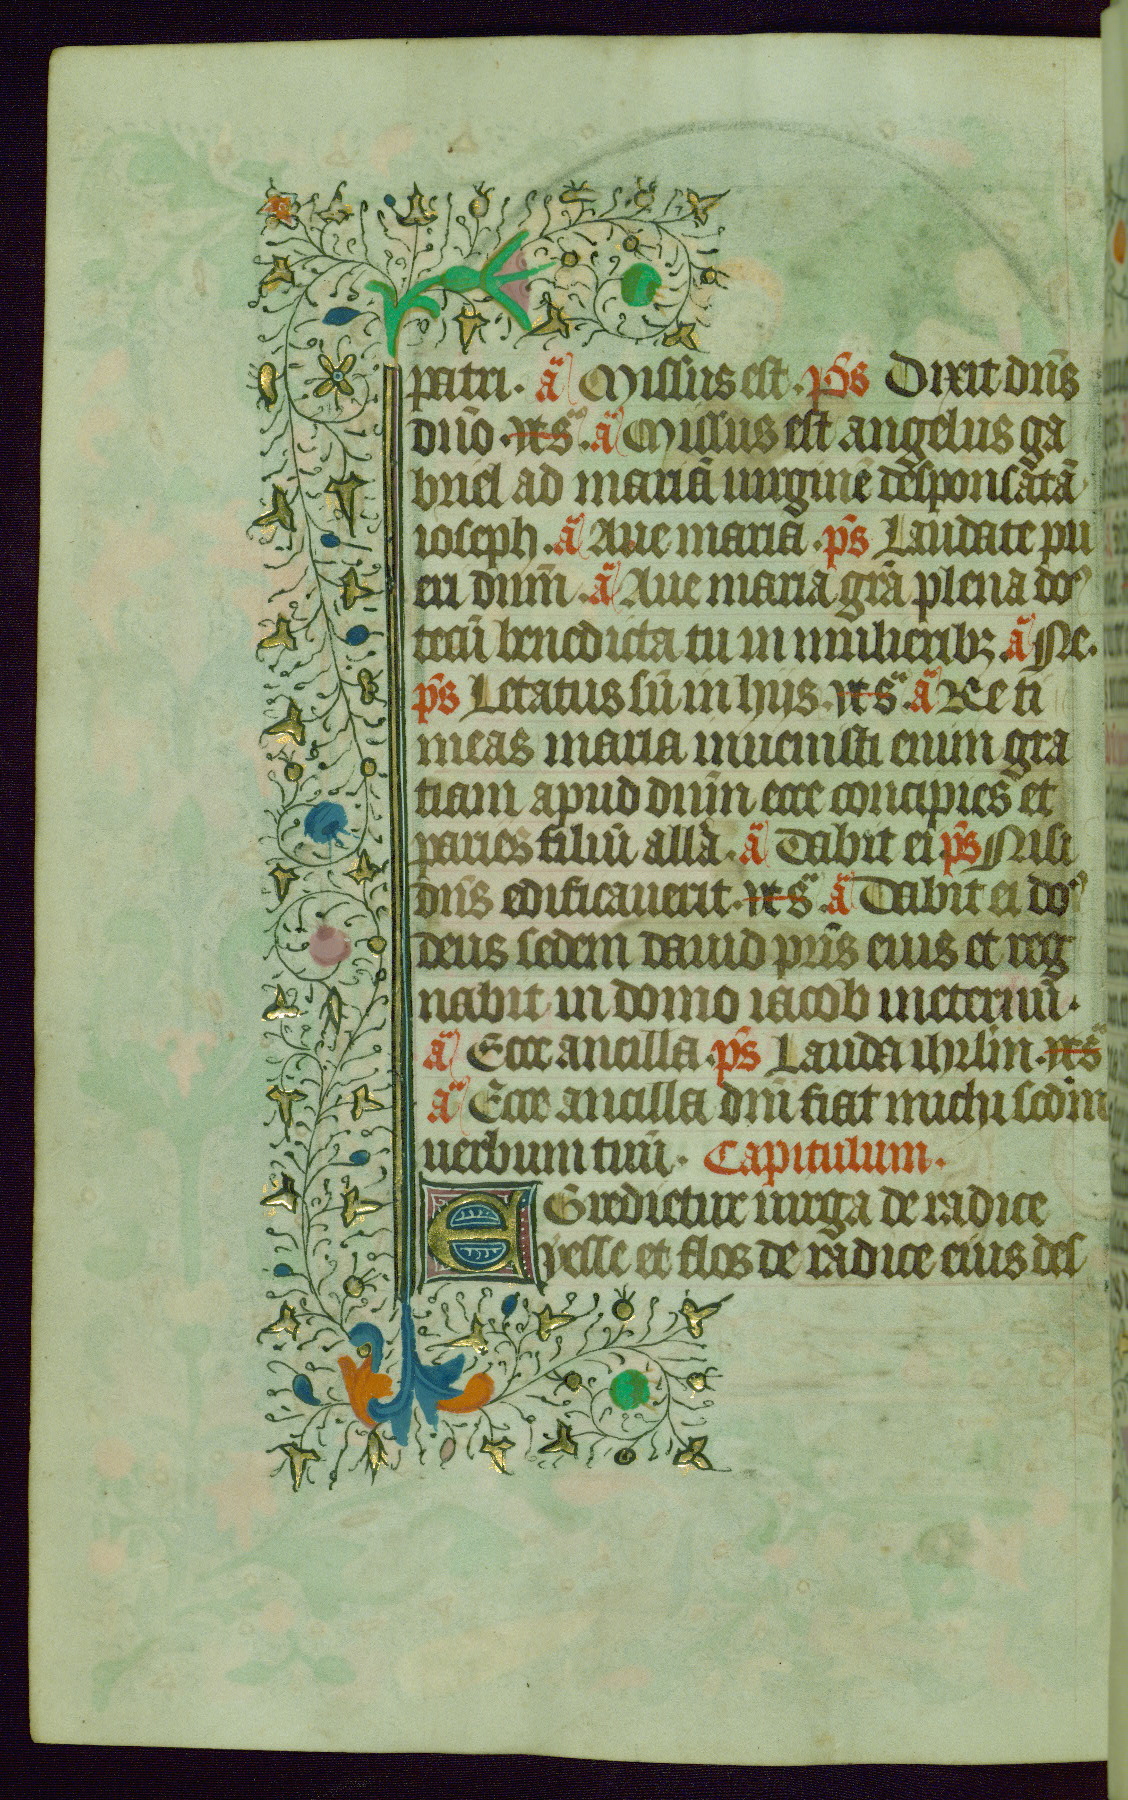 patri. a᷃ Missus est. p̄s Dixit dn̄s
dn̄o. a᷃ Missus est angelus ga
briel ad mariā uirginē desponsatā
ioseph. a᷃ Aue maria. p̄s Laudate pu
eri dnm̄. a᷃ Aue maria grā plena do᷒
tecū benedicta tu in mulieribꝫ a᷃ Ne.
p̄s Letatus sū in hijs. a᷃ Ne ti
meas maria inuenisti enim gra
tiam apud dnm̄ ecce concipies et
paries filiū allā. a᷃ Dabit ei p̄s Nisi
dn̄s edificauerit. a᷃ Dabit ei do᷒
deus sedem dauid pr̄is eius et reg
nabit in domo iacob ineternū.
a᷃ Ecce ancilla. p̄s Lauda ihrlm̄.
a᷃ Ecce ancilla dnī fiat michi scdm̄
uerbum tuū. Capitulum.
EGredietur uirga de radice
yesse et flos de radice eius des